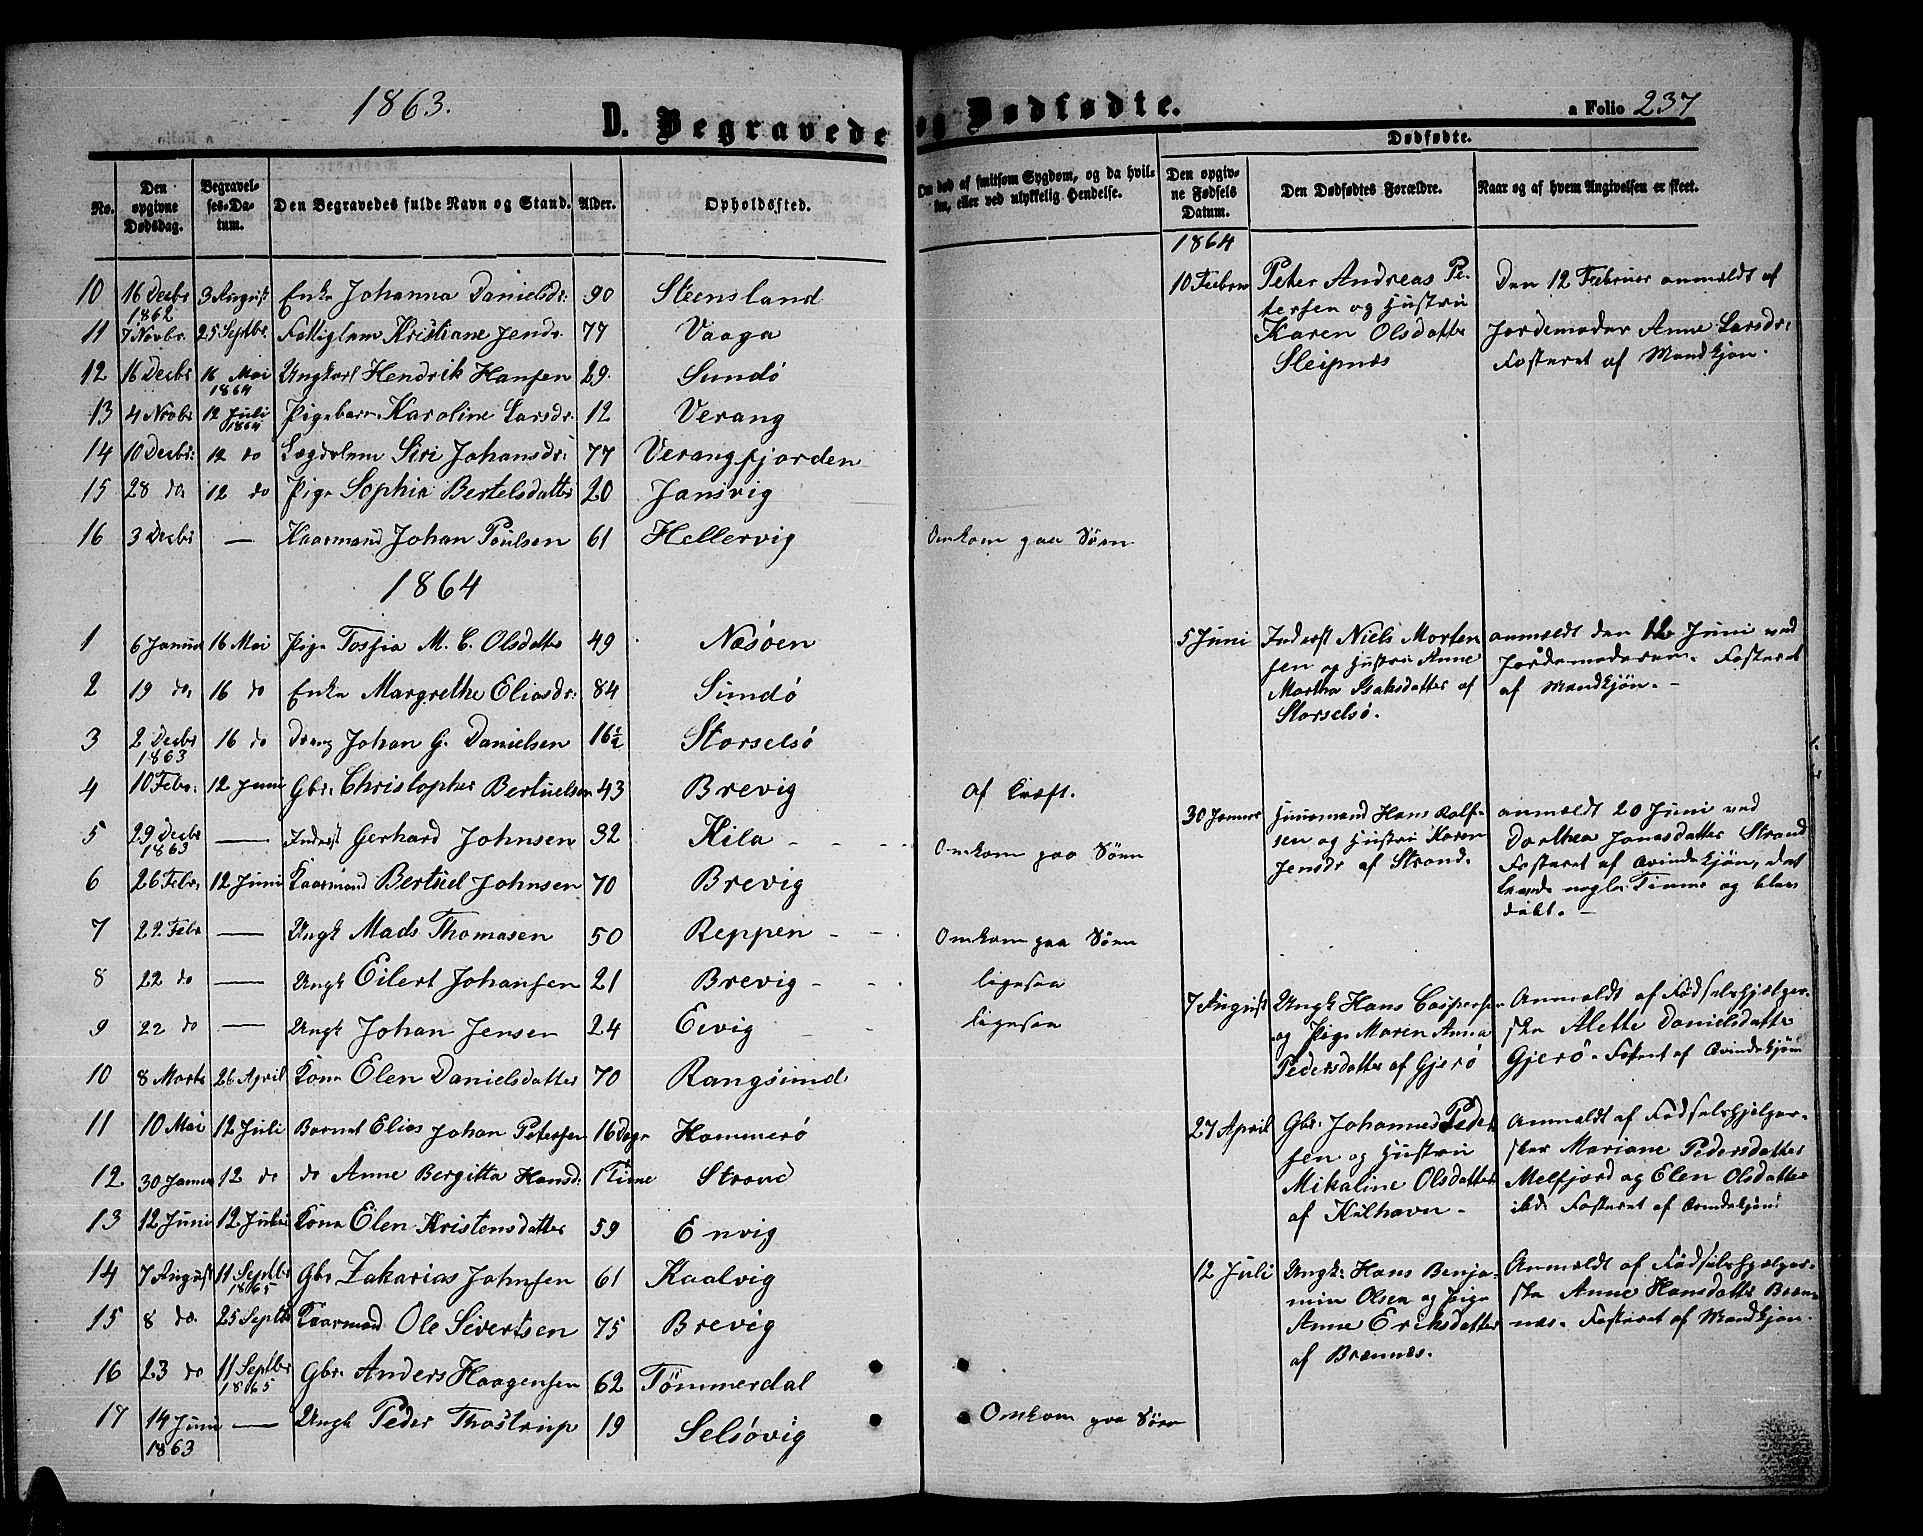 1863.
D. Begravede og Dødfødte.
a Folio 237
No. Den opgivne Dødsdag. Begravelses-Datum. Den Begravedes fulde Navn og Stand. Alder. Opholdssted.
Om død af smitsom Sygdom, og da hvilken, eller ved ulykkelig Hendelse.
Dødfødte.
Den opgivne Fødsels Datum. Den Dødfødtes Forældre. Naar og af hvem Angivelsen er skeet.
10 16 Decbr 1862 3 August Enke Johanna Danielsdr: 90 Steensland
11 7 Novbr. 25 Septbr. Fattiglem Kristiane Jensdr. 77 Vaaga
12 16 Decbr 16 Mai 1864 Ungkarl Hendrik Hansen 29. Sundö
13 4 Novbr 12 Juli 1864 Pigebarn Karoline Larsdr. 12 Verang
14 10 Decbr: 12 do Lægdslem Siri Johansdr: 77 Verangfjorden
15 28 do 12 do Pige Sophia Bertelsdatter 20 Jansvig
16 3 Decbr — Kaarmand Johan Poulsen 61 Hellervig Omkom paa Søen
1864
1 6 Januar 16 Mai Pige M. C. Olsdatter 49 Næsöen
2 19 do 16 do Enke Margrethe Eliasdr: 84 Sundö
3 2 Decbr 1863 16 do Dreng Johan G. Danielsen 16 ½ Storselsö
4 10 Febr. 12 Juni Gbr. Christopher Bertuelsen 43 Brevig af Kræft.
5 29 Decbr 1863 — Inderst Gerhard Johnsen 32 Kila - - Omkom paa Søen
6 26 Febr. 12 Juni Kaarmand Bertuel Johnsen 70 Brevig
7 22 Febr — Ungk Mads Thomasen 50 Reppen - - Omkom paa Søen
8 22 do — Ungk Eilert Johansen 21 Brevig - - ligesaa
9 22 do — Ungk Johan Jensen 24 Eevig - - ligesaa
10 8 Marts 26 April Kone Elen Danielsdatter 70 Rangsund
11 10 Mai 12 Juli Barnet Elias Johan Petersen 16 Dage Hammerö
12 30 Januar 12 do do Anne Bergitta Hansd: 1 Time Strand
13 12 Juni 12 Juli Kone Elen Kristensdatter 59 Envig
14 7 August 11 Septbr 1865 Gbr Zakarias Johnsen 61 Kaalvig
15 8 do. 25 Septbr Kaarmand Ole Sivertsen 75 Brevig
16 23 do 11 Septbr 1865 Gbr. Anders Haagensen 62 Tömmerdal
17 14 Juni 1863 — Ungk Peder Thostrup 19 Selsövig Omkom paa Søen
1864
10 Febru Peter Andreas Pe- Den 12 Februar anmeldt af
tersen og Hustru
Karen Olsdatter Jordemoder Anne Larsdr:
Sleipnæs Fosteret af Mandkjøn.
5 Juni Inderst Niels Morten anmeldt den Juni ved
sen og Hustru Anne Jordemoderen. Fosteret
Martha Isaksdatter af af Mandkjøn. -
Storselsö.
30 Januar Huusmand Hans Rolf- anmeldt 20 Juni ved
sen og Hustru Karen Dorthea Jonasdatter Strand
Jensdr af Strand. Fosteret af Qvindekjøn, det
levede nogle Timer og blev
døbt. -
7 August Ungk Hans Caspersen Anmeldt af Fødselshjælper-
og Pige Maren Anna ske Alette Danielsdatter
Pedersdatter af Gjerö Gjerö. Fosteret af Qvindekjøn
27 April Gbr. Johannes Peder Anmeldt af Fødselshjelper-
sen og Hustru sker Mariane Pedersdatter
Mikaline Olsdatter Melfjord og Elen Olsdatter
af Kilhavn - ibd. Fosteret af Qvindekjøn.
12 Juli Ungk: Hans Benja- Anmeldt af Fødselshjælper-
min Olsen og Pige ske Anne Hansdatter Bræn-
Anne Eriksdatter næs. Fosteret af Mandkjøn.
af Brænnæs.